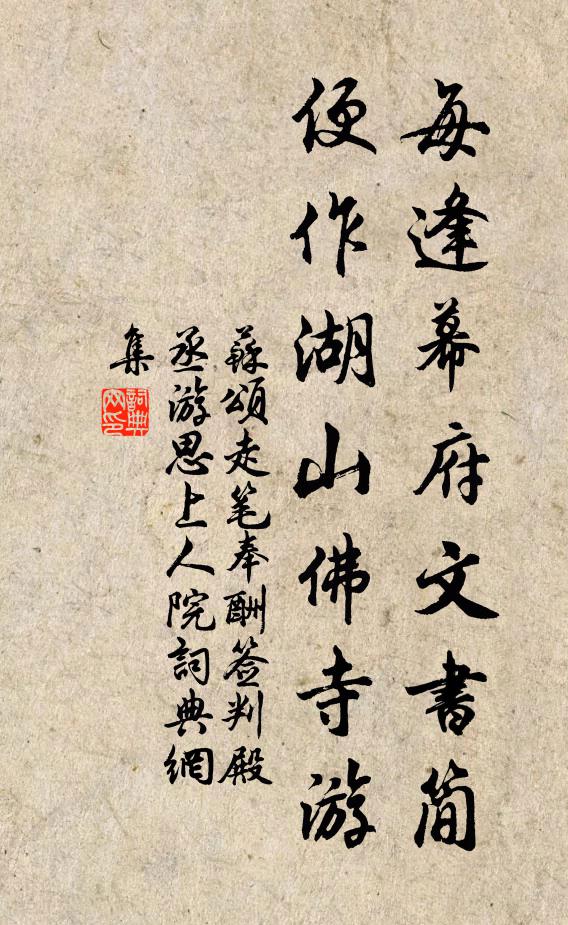 每逢幕府文書简
便作湖山佛寺游
蘇頌走笔奉酬签判殿
丞游思上人院詞典網
集
詞典
网印